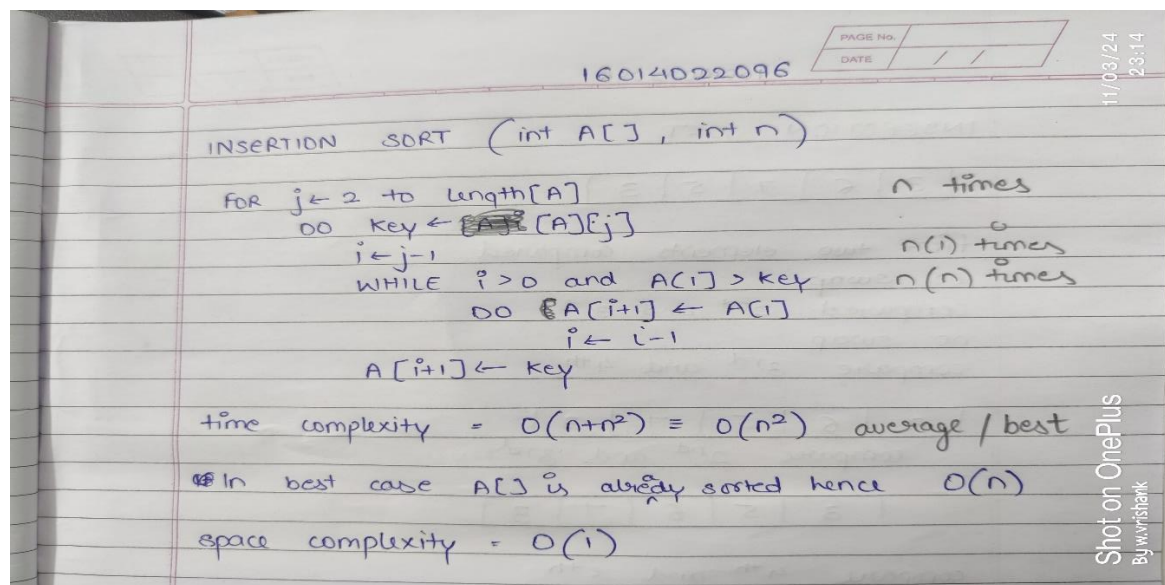 PAGE No.
DATE / /
16014022096
11/03/24
23:14
INSERTION SORT (int A[], int n)
FOR j ← 2 to length[A] n times
DO Key ← [A][j]
i ← j-1 n(1) times
WHILE i>0 and A[i] > Key n(n) times
DO A[i+1] ← A[i]
i ← i-1
A[i+1] ← Key
time complexity = O(n+n²) ≡ O(n²) average / best
In best case A[] is already sorted hence O(n)
space complexity = O(1)
Shot on OnePlus
By w.vrishank